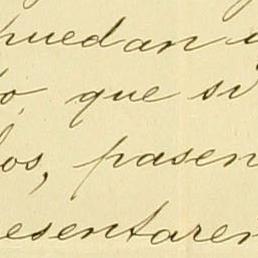 puedan
o, que si
los, pasen
esentaren